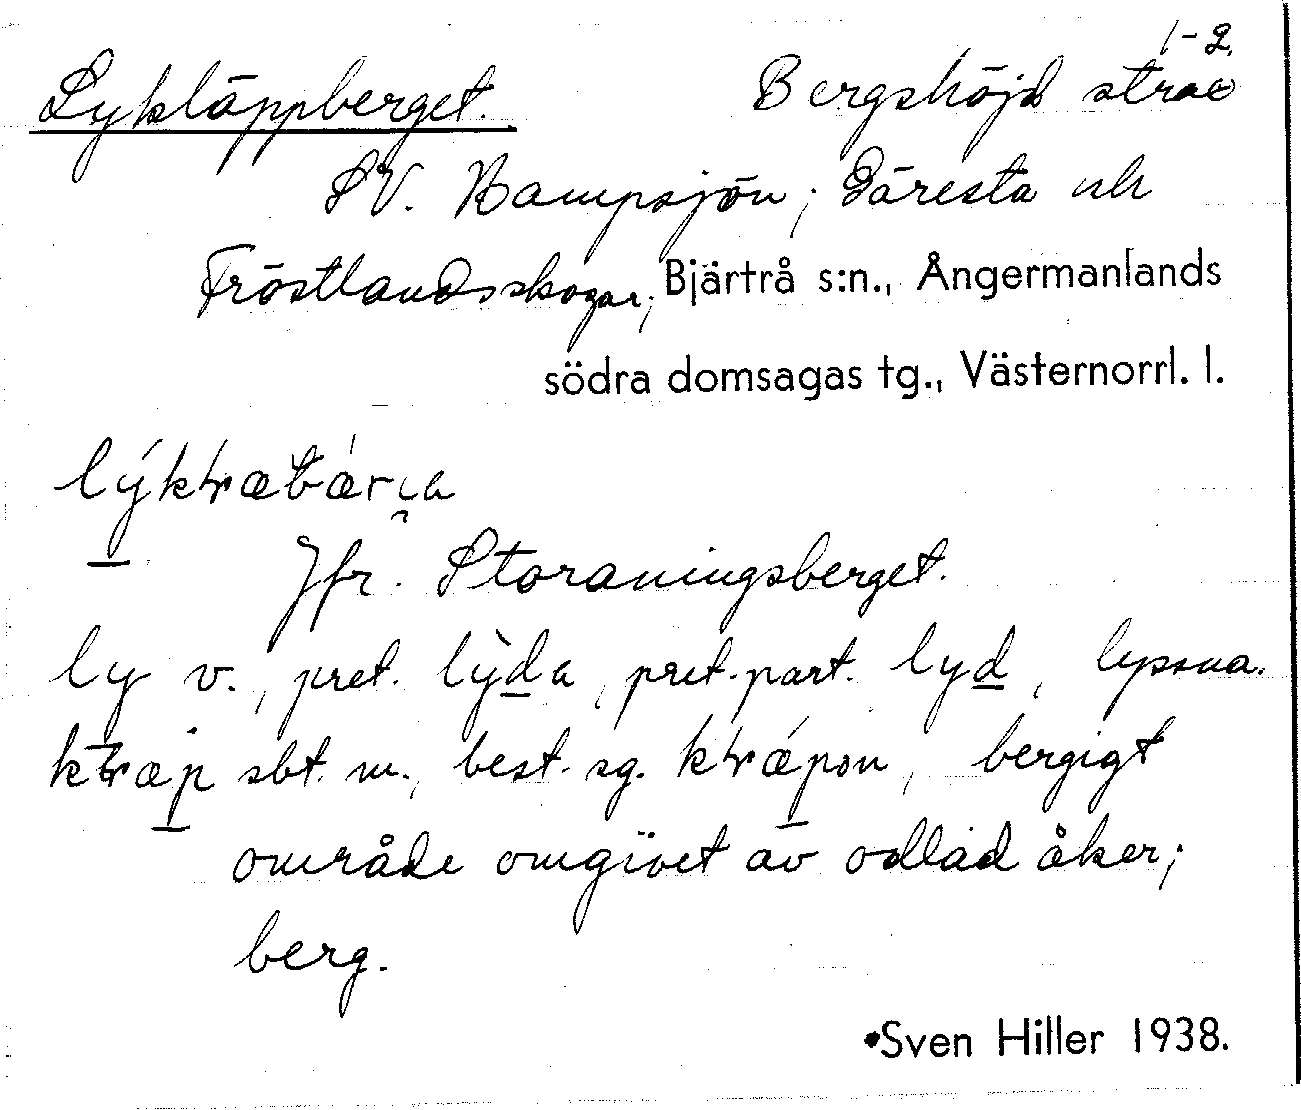 1-2.
Lykläppberget. Bergshöjd strax
SV. Kampsjön; Gäresta och
Fröstlandsskogar; Bjärtrå s:n., Ångermanlands
södra domsagas tg., Västernorrl. l.
Jfr. Storaningsberget.
ly v., pret. lỳda, pret.part. lyd, lyssna.
sbt. m., best. sg. bergigt
område omgivet av odlad åker;
berg.
Sven Hiller 1938.